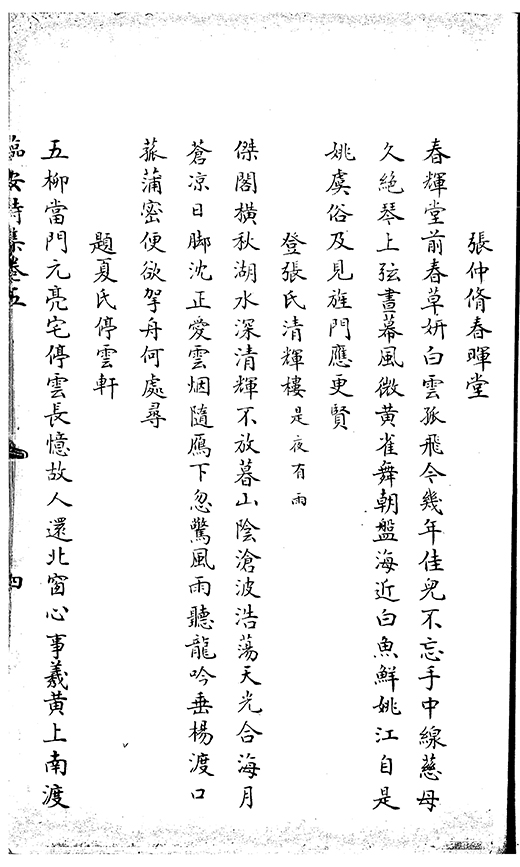 張仲脩春暉堂
春輝堂前春草妍白雲孤飛今幾年佳兒不忘手中線慈母
久絶琴上弦晝幕風微黄雀舞朝盤海近白魚鮮姚江自是
姚虞俗及見旌門應更賢
登張氏清輝樓是夜有雨
傑閣橫秋湖水深清輝不放暮山陰滄波浩蕩天光合海月
蒼凉日脚沈正愛雲烟隨鴈下忽驚風雨聽龍吟垂楊渡口
菰蒲密便欲拏舟何處尋
題夏氏停雲軒
五柳當門元亮宅停雲長憶故人還北窗心事羲黄上南渡
臨安詩集卷五
四